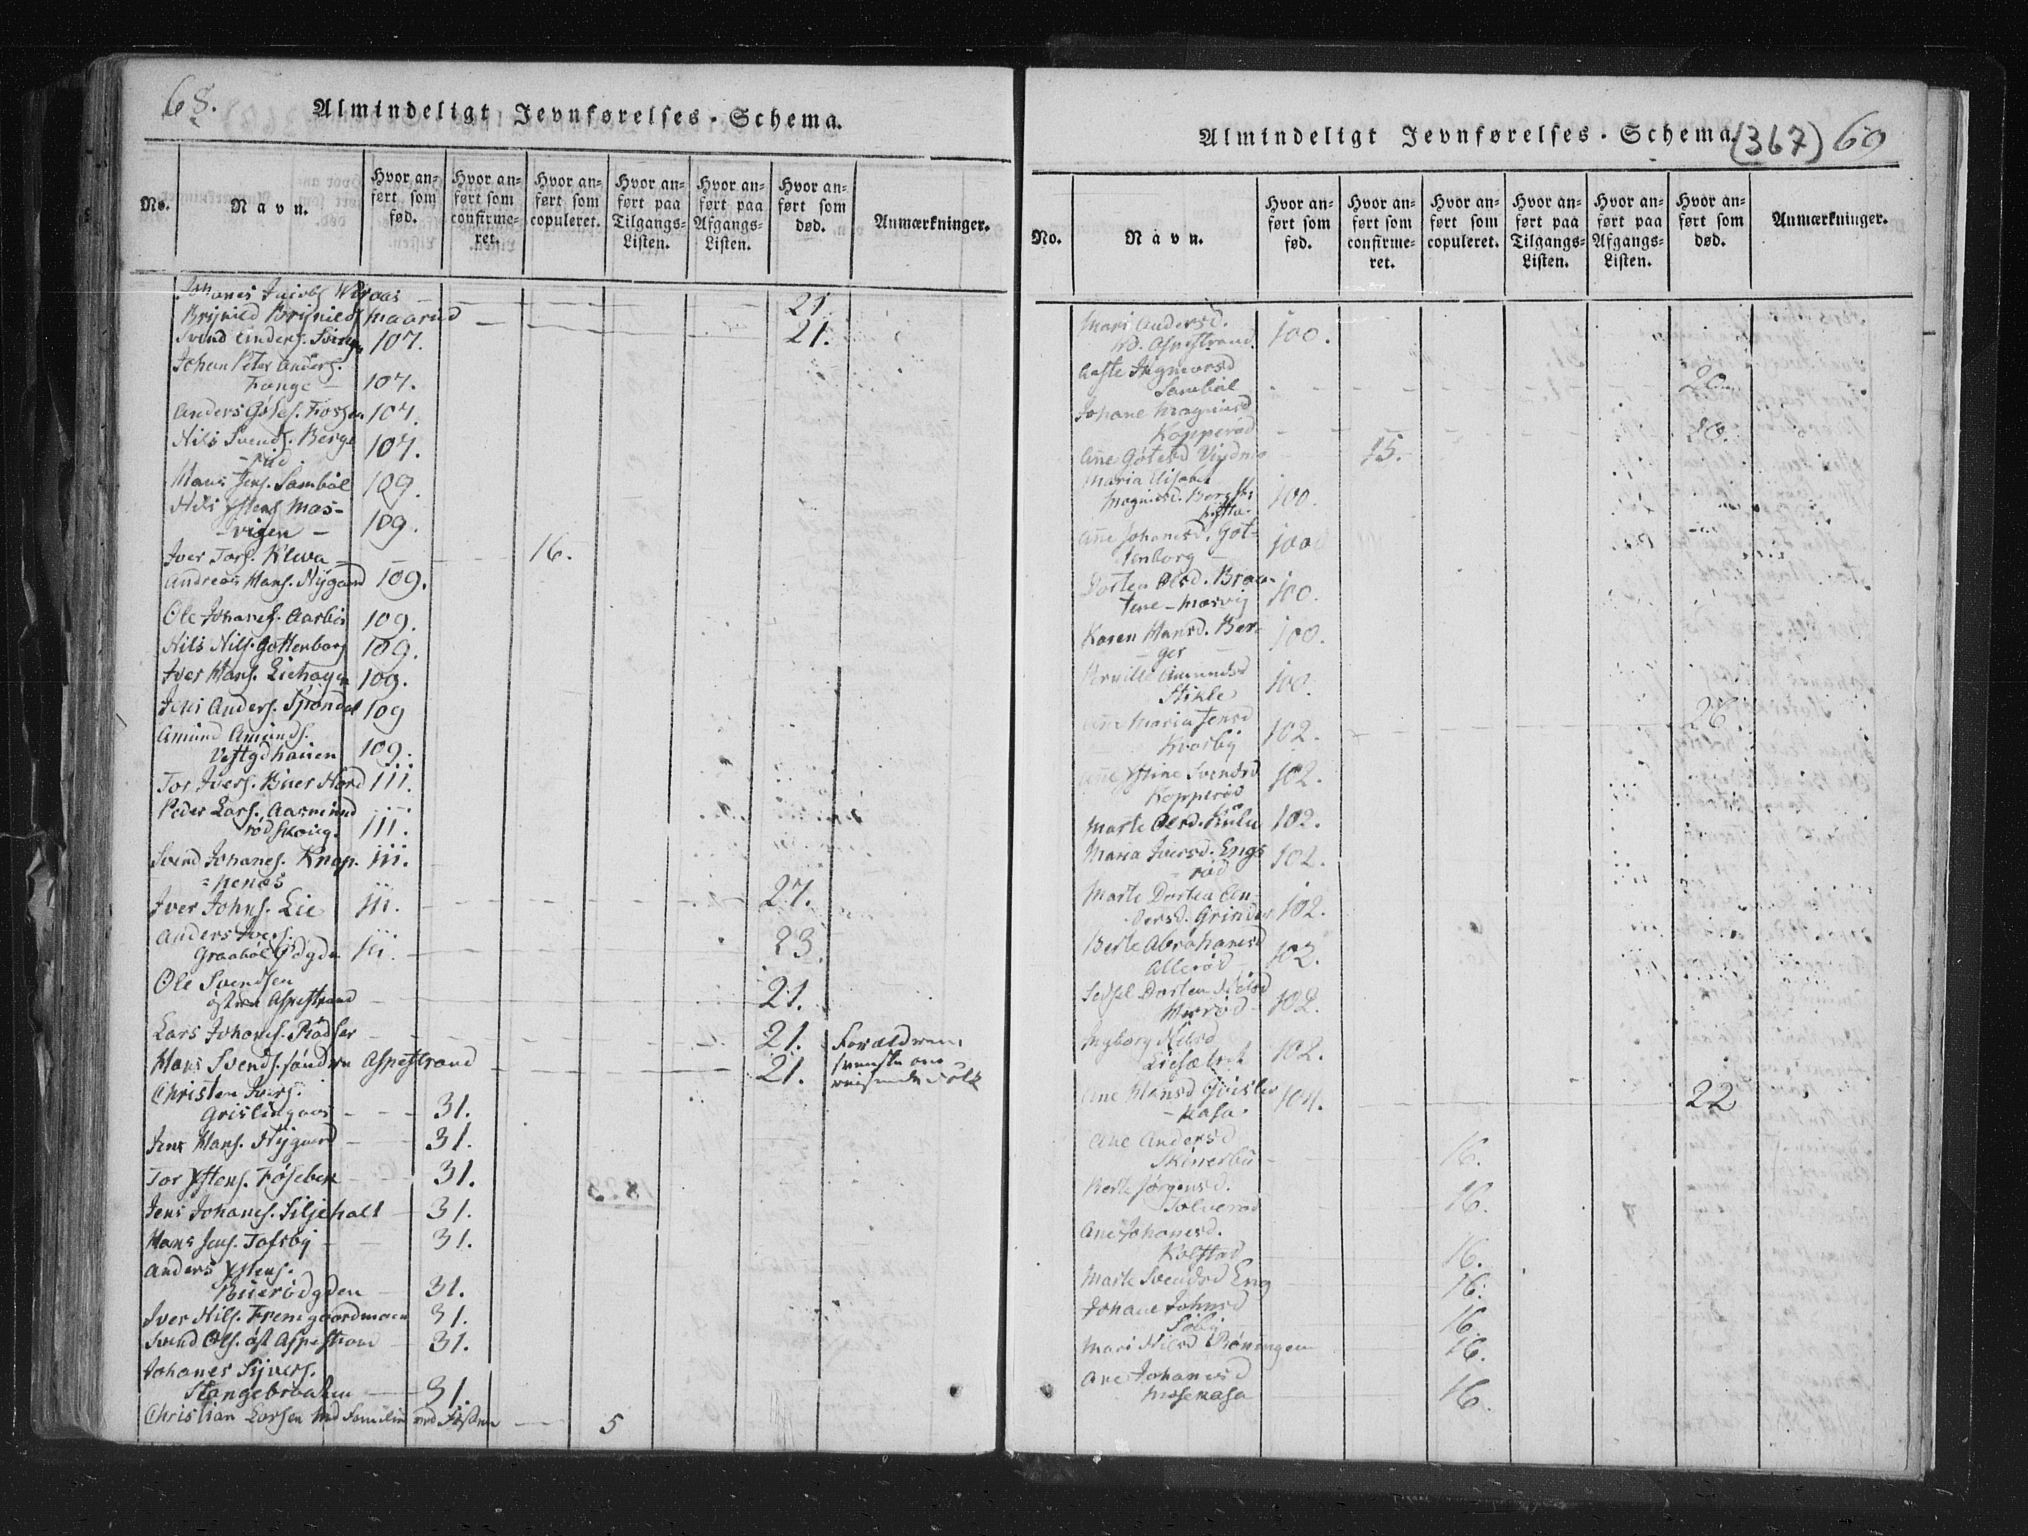 68.
Almindeligt Jevnførelses-Schema.
No.
Navn.
Hvor anført som fød.
Hvor anført som confirmeret.
Hvor anført som copuleret.
Hvor anført paa Tilgangs-Listen.
Hvor anført paa Afgangs-Listen.
Hvor anført som død.
Anmærkninger.
Johanes Jacobs - - - - 21.
Brynild Brynilds Maarud - - - 21.
Svend Anders. 107.
Johan Peter Anders.
Fange - 107.
Anders Fossen 107.
Nils Svends. Berge
- rud 107.
Hans Jens. Sambøl 109.
Nils Ystens. Mas-
- vigen - 109.
Iver Tors. Kleva - - - 16.
Andreas Hans. Nygard 109.
Ole Johanes. Aarbu 109.
Nils Nils. Gottenborg 109.
Iver Hans. Liehagen 109.
Jens Anders. 109
Amund Amunds.
Vestgdhauen 109.
Tor Ivers. Buer Nord 111.
Peder Lars. Aasmund
rødskoug. 111.
Svend Johanes. Knap- 111.
=penæs
Iver Johns. Lie 111. - - - 27.
Anders Ivers.
Graabøl Ødgdn 111. - - - 23.
Ole Svendsen
østre Aspestrand - - - 21.
Lars Johanes. - - - 21. Forældrene
Hans Svends. søndre Aspestrand - - 21. svenske om
reisende Folk
Christen Ivers.
- - - 31.
Jens Hans. Nygaard - 31.
Tor Ystens. Føsebek - - 31.
Jens Johanes. Siljeholt - 31.
Hans Jens. Tofsby - - 31.
Anders Ystens.
Buerødgden - 31.
Iver Nils. Fremgaardmoen 31.
Svend Ols. øst Aspestrand - 31.
Johanes Syvers.
Stangebraaten - 31.
Christian Larsen med Familie ved Fossen - 5
Almindeligt Jevnførelses-Schema.
(367) 69
No.
Navn.
Hvor anført som fød.
Hvor anført som confirmeret.
Hvor anført som copuleret.
Hvor anført paa Tilgangs-Listen.
Hvor anført paa Afgangs-Listen.
Hvor anført som død.
Anmærkninger.
Mari Andersd.
Aspestrand 100.
Aaste Ingmarsd
Sambøl - - - - 26
Johane Magnusd
Kopperød - - - - 20.
Ane 15.
Maria Lisabet
Magnusd. 100.
Ane Johanesd. Got-
tenborg - 100
Dorten Olsd. Braa-
tene - Masvig 100.
Karen Hansd. Ber-
- ger - 100.
Pernille Amundsd
Stikle 100. 26.
Ane Maria Jensd
Kvasby 102.
Ane Ystine Svendsd
Kopperød 102.
Marte Olsd. 102.
Maria Iversd. Engs
- rød 102.
Marte Dorten An-
dersd. Grinder 102.
Berte Abrahamsd
Allerød 102.
Sidsel Dorten
102.
Ingborg Nilsd
Liesætret 102.
Ane Hansd
- Kasa. 104. - - - 22
Ane Andersd
- 16.
Berte Jørgensd.
Solverød 16.
Ane Johanesd.
Kolstad 16.
Marte Svendsd Eng 16.
Johane Johnsd
Søby 16
Mari Nilsd Røningen 16.
Ane Johanesd
Mosekasa 16.